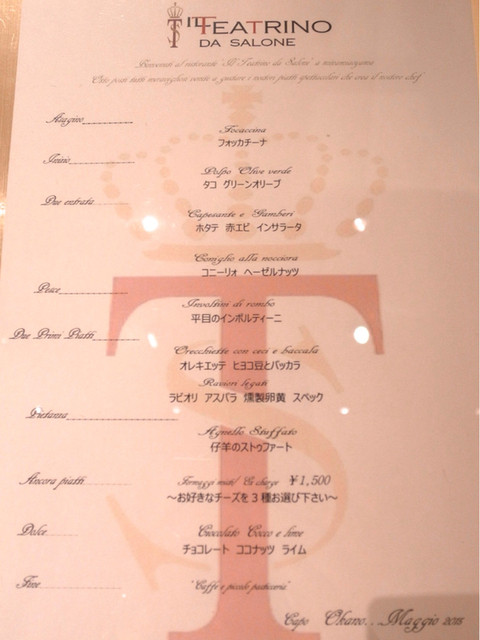 IL TEATRINO
DA SALONE
Benvenuti al ristorante "Il Teatrino da Salone" a minamiaoyama
Otto posti tutti meravigliosi venite a gustare i nostri piatti spettacolari che crea il nostro chef
Focaccina
フォッカチーナ
Inizio
Polpo Olive verde
タコ グリーンオリーブ
Due entrata
Capesante e Gamberi
ホタテ 赤エビ インサラータ
Coniglio alla nocciora
コニーリォ ヘーゼルナッツ
Pesce
Involtini di rombo
平目のインボルティーニ
Due Primi Piatti
Orecchiette con ceci e baccala
オレキエッテ ヒヨコ豆とバッカラ
Raviori legati
ラビオリ アスパラ 燻製卵黄 スペック
Pietanza
Agnello Stuffato
仔羊のストゥファート
Ancora piatti
Formaggi misti/ Ex charge ¥1,500
～お好きなチーズを3種お選び下さい～
Dolce
Cioccolato Cocco e lime
チョコレート ココナッツ ライム
Fine
"Caffe e piccoli pasticceria"
Capo Okano . . Maggio 2015